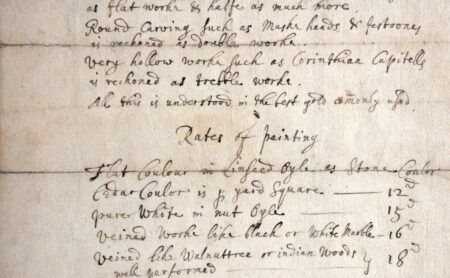 as flat worke & halfe as much more
Round Carving such as Maske heads & festoones
is reckoned as double worke.
Very hollow worke such as Corinthian Capitells
is reckoned as treble worke.
All this is understood in the best gold comonly used
Rates of painting
Flat Coulour in Linseed Oyle as Stone Coulor
Cedar Coulor is p yard Square — 12d
pure White in nut Oyle — 15d
veined Worke like black or White Marble - 16d
veined like Walnuttree or indian Woods
well performed — 18d